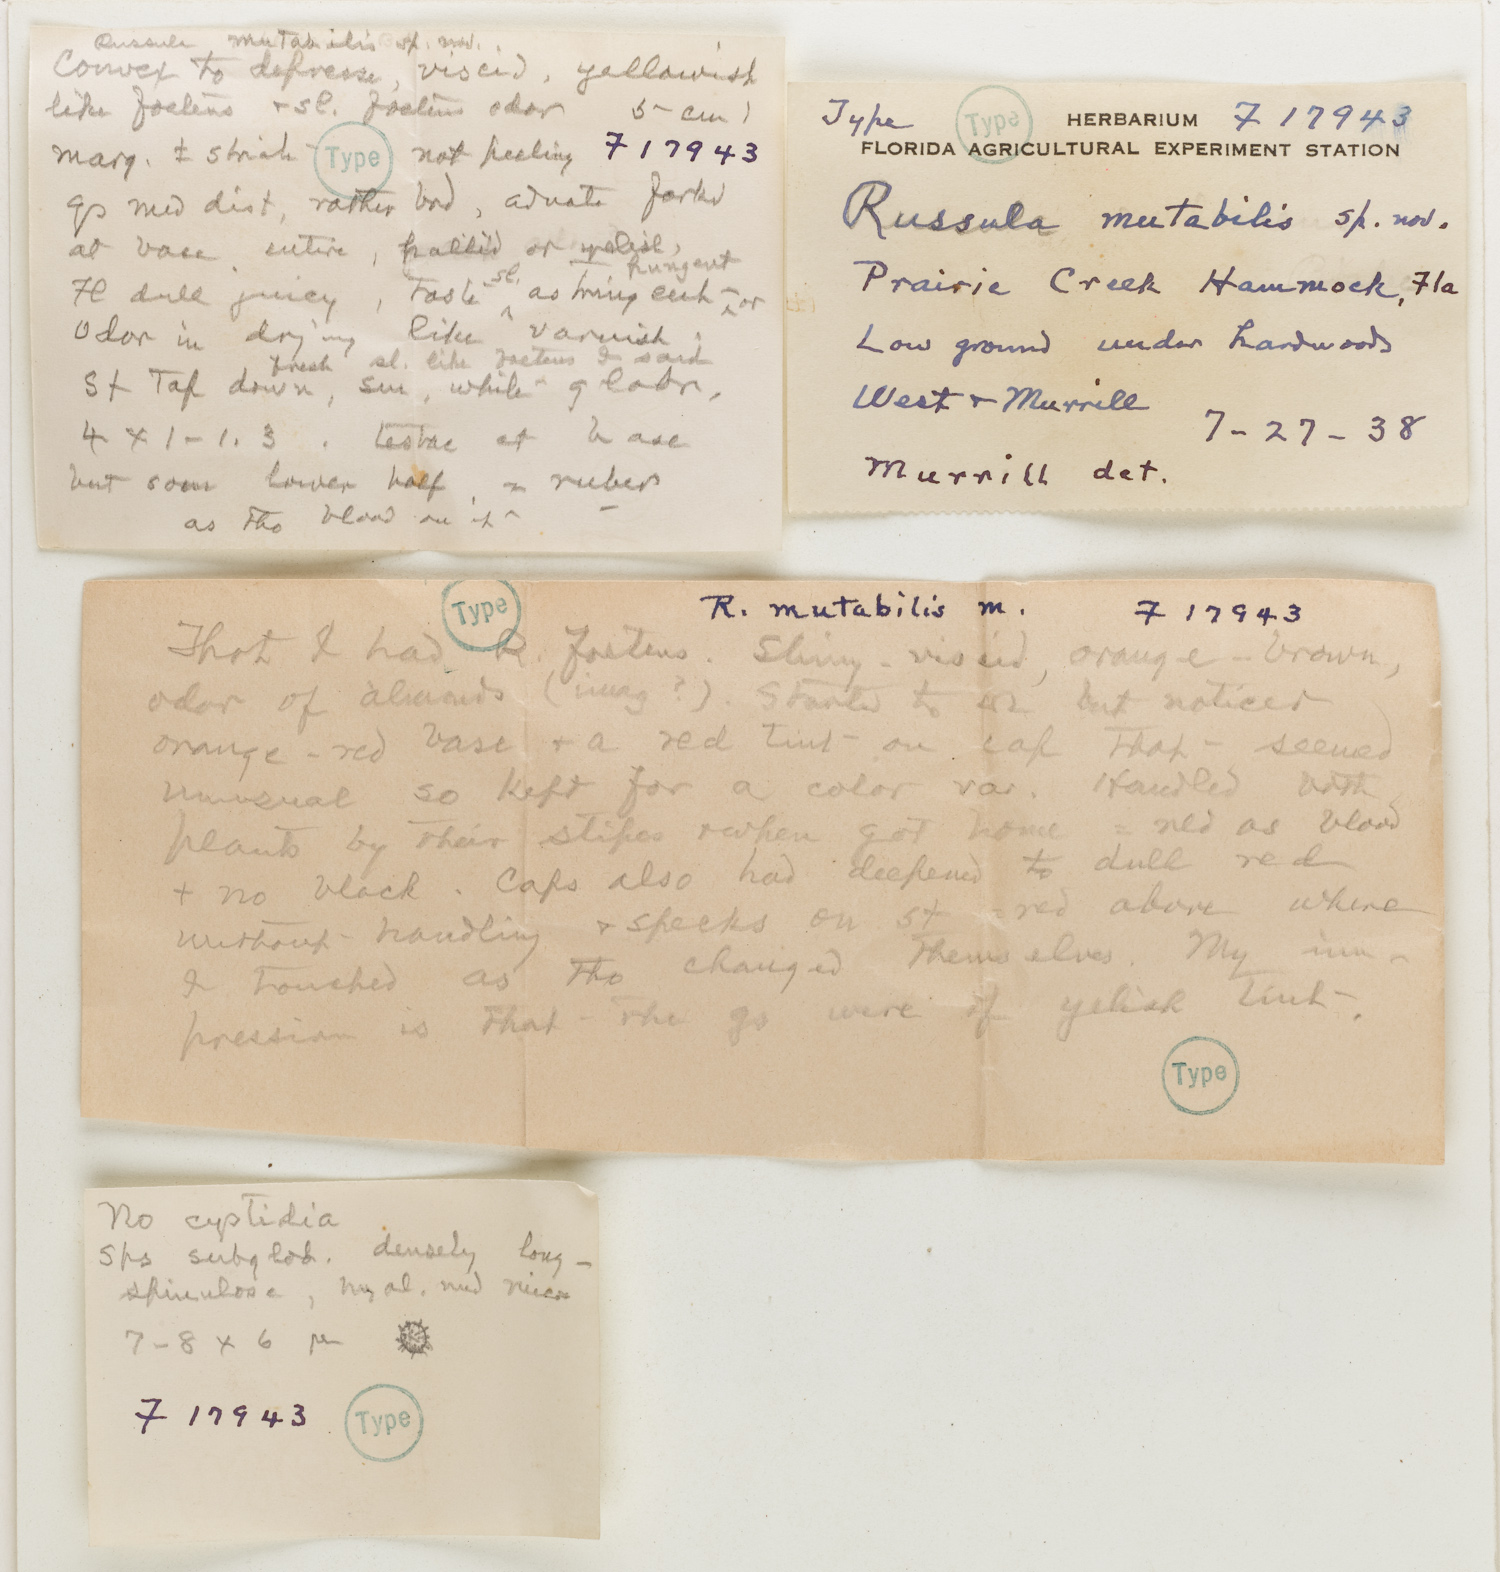 Russula mutabilis sp. nov.
Convex to depresse, viscid, yellowish
like foetens + sl. foetens odor 5 cm
marg. ± striate not peeling F 17943
Type
gs med dist, rather brd, adnate forkd
at base, entire, pallid or yelish,
Fl dull juicy, Taste sl. astringent or pungent
Odor in drying like varnish.
fresh sl. like foetens I said
St Tap down, sm, white glabr,
4 x 1-1.3. testac at base
but soon lower half, = rubers
as tho blood on it
Type Type HERBARIUM F 17943
FLORIDA AGRICULTURAL EXPERIMENT STATION
Russula mutabilis sp. nov.
Prairie Creek Hammock, Fla
Low ground under hardwoods
West + Murrill
7-27-38
Murrill det.
Type R. mutabilis m. F 17943
Thot I had R. foetens. Slimy-viscid, orange-brown,
odor of almonds (imag?). Started to but notices
orange-red base + a red tint on cap that seemed
unusual so kept for a color var. Handled both
plants by their stipes + when got home = red as blood
+ no black. Caps also had deepened to dull red
without handling + specks on st = red above where
I touched as tho changed themselves. My im-
pression is that the gs were of yelish tint.
Type
No cystidia
Sps subglob. densely long-
spinulose, hyal. und micr
7-8 x 6 µ
F 17943 Type